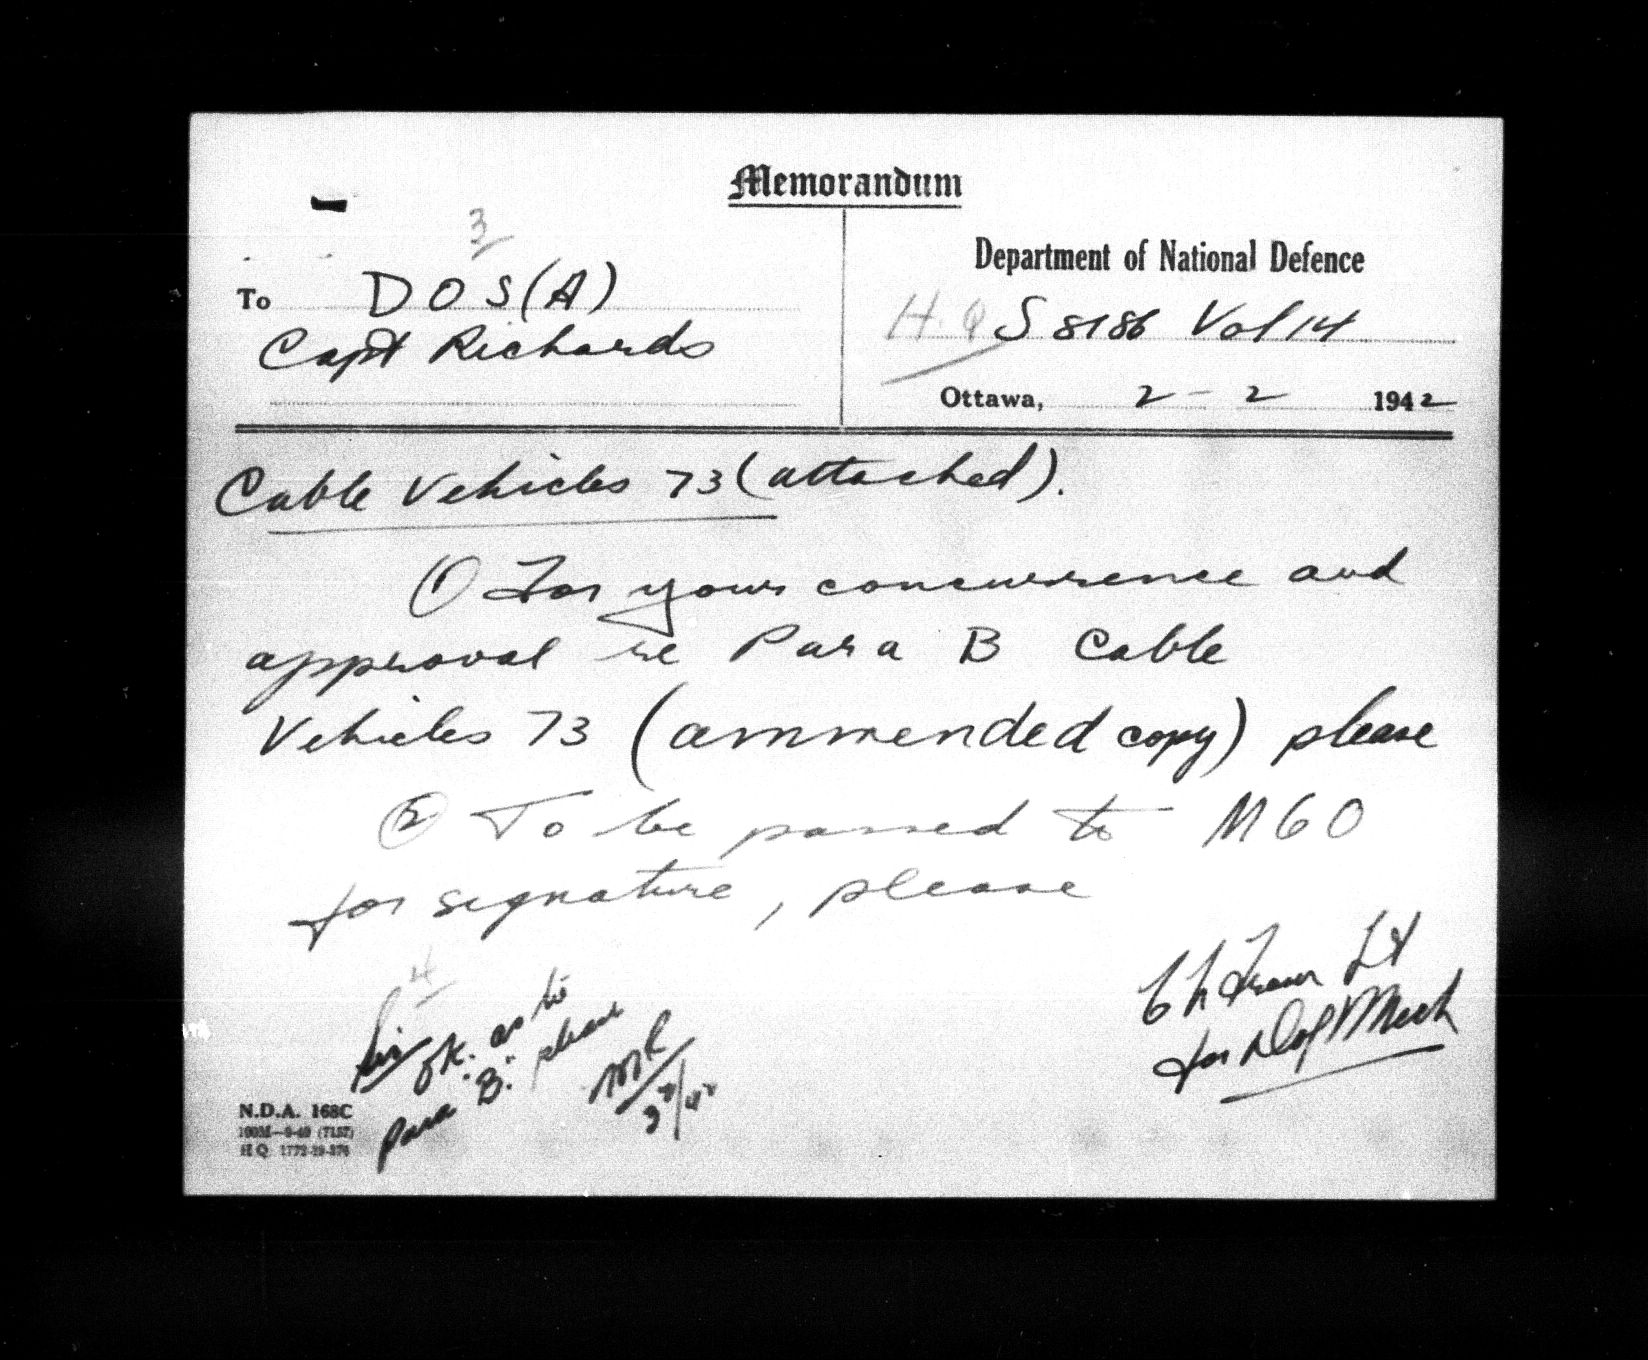 Memorandum
3
To DOS(A)
Capt Richards
Department of National Defence
H.Q S 8186 Vol 14
Ottawa, 2 - 2 1942
Cable Vehicles 73 (attached).
(1) For your concurrence and
approval re Para B Cable
Vehicles 73 (ammended copy) please
(2) To be passed to MGO
for signature, please
Lt
for D of Mech
4
Sir
OK. as to
Para B. please
3/2/42
N.D.A. 168C
H.Q. 1772-39-376